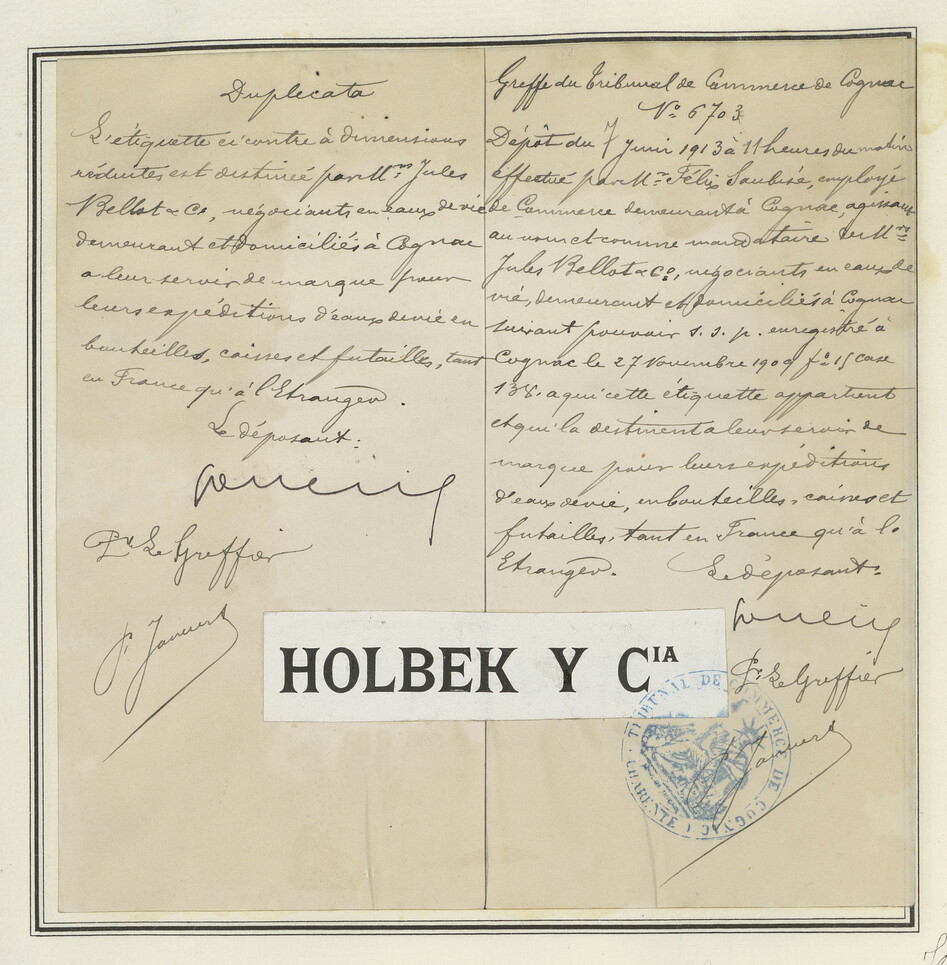 Duplicata
L'étiquette ci contre à dimensions
réduites est destinée par M.rs Jules
Bellot & Co, négociants en eaux de vie
demeurant et domiciliés à Cognac
a leur servir de marque pour
leurs expéditions d'eaux de vie en
bouteilles, caisses et futailles, tant
en France qu'à l'Etranger.
Le déposant:
Pr Le Greffier
Greffe du Tribunal de Commerce de Cognac
No 6703
Dépôt du 7 Juin 1913 à 11 heures du matin
effectué par Mr Félix Saubisé, employé
de Commerce demeurant à Cognac, agissant
au nom et comme mandataire de M.rs
Jules Bellot & Co, négociants en eaux de
vie, demeurant et domiciliés à Cognac
suivant pouvoir s. s. p. enregistré à
Cognac le 27 Novembre 1909 fo 15 case
138. a qui cette étiquette appartient
et qui la destinent a leur servir de
marque pour leurs expéditions
d'eaux de vie, en bouteilles, caisses et
futailles, tant en France qu'à l'
Etranger. Le déposant:
Pr Le Greffier
HOLBEK Y CIA
TRIBUNAL DE COMMERCE DE COGNAC
CHARENTE